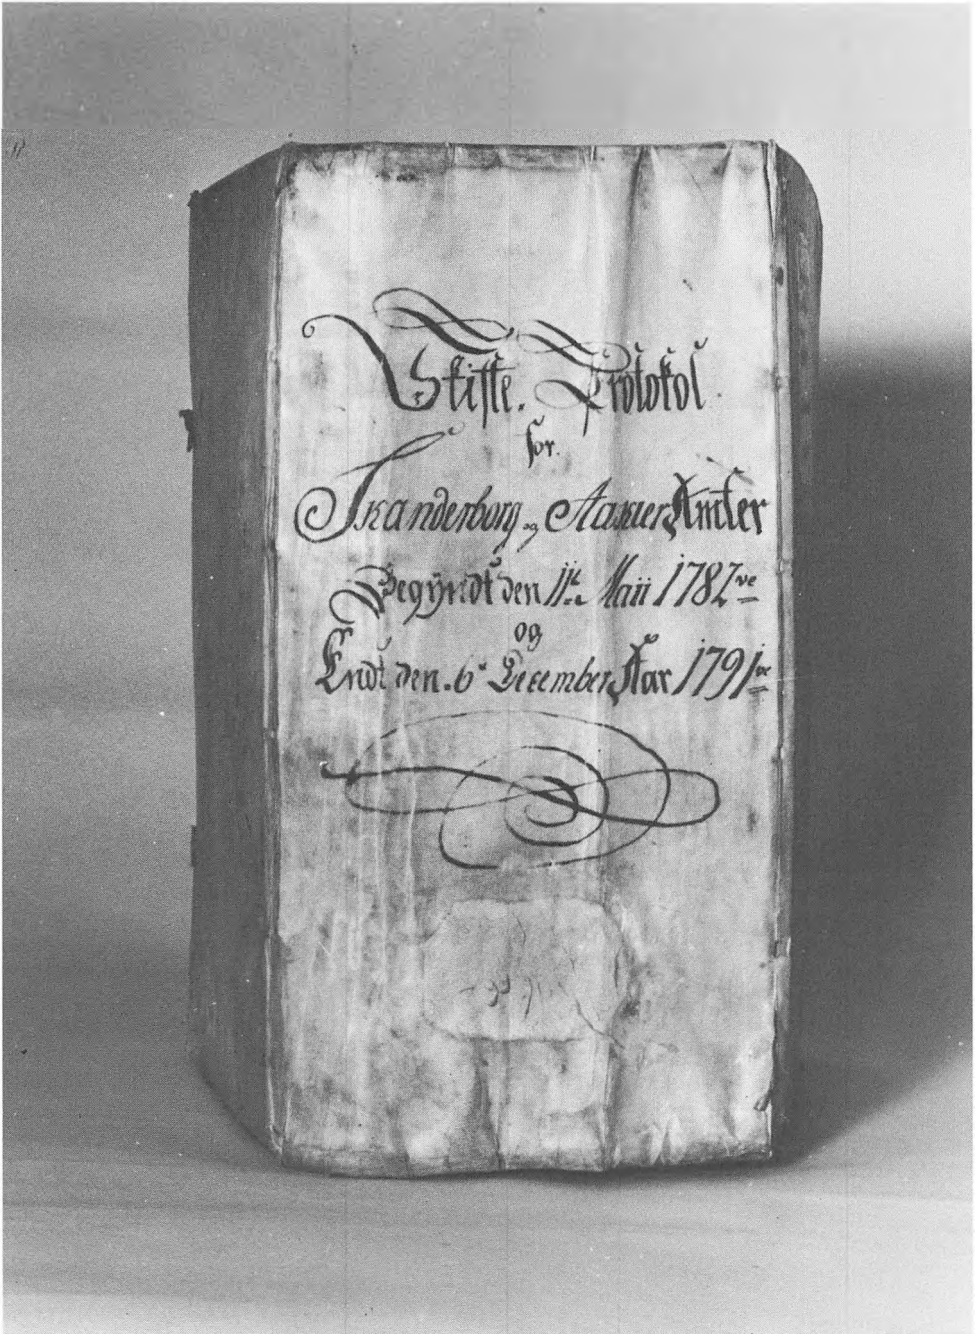 Skifte. Protokol.
for.
Skanderborg og Aakiær Amter
Begyndt den 11te Maii 1782ve
og
Endt den. 6te December Aar 1791